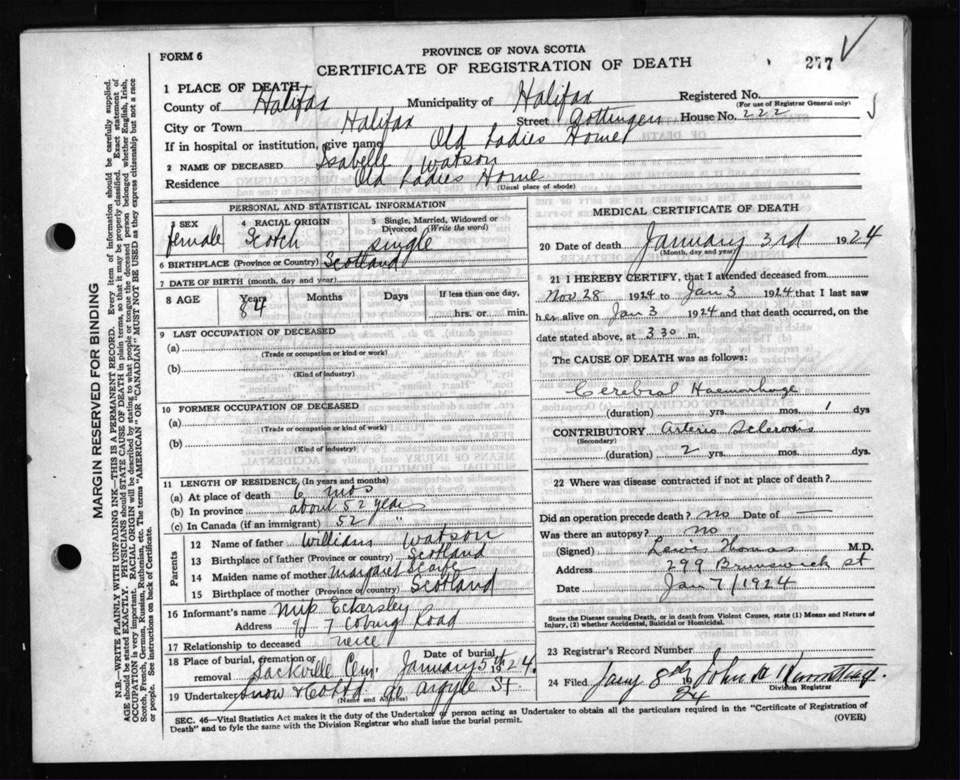 FORM 6
PROVINCE OF NOVA SCOTIA
CERTIFICATE OF REGISTRATION OF DEATH
277
1 PLACE OF DEATH
County of Halifax Municipality of Halifax Registered No.
(For use of Registrar General only)
City or Town Halifax Street Gottingen House No. 222
If in hospital or institution, give name Old Ladies Home
2 NAME OF DECEASED Isabelle Watson
Residence Old Ladies Home
(Usual place of abode)
PERSONAL AND STATISTICAL INFORMATION
3 SEX female
4 RACIAL ORIGIN Scotch
5 Single, Married, Widowed or Divorced (Write the word) single
6 BIRTHPLACE (Province or Country) Scotland
7 DATE OF BIRTH (month, day and year)
8 AGE Years 84 Months Days If less than one day, hrs. or min.
9 LAST OCCUPATION OF DECEASED
(a)
(Trade or occupation or kind or work)
(b)
(Kind of industry)
10 FORMER OCCUPATION OF DECEASED
(a)
(Trade or occupation or kind or work)
(b)
(Kind of industry)
11 LENGTH OF RESIDENCE, (In years and months)
(a) At place of death 6 mos
(b) In province about 52 years
(c) In Canada (if an immigrant) 52 "
Parents
12 Name of father William Watson
13 Birthplace of father (Province or country) Scotland
14 Maiden name of mother Margaret
15 Birthplace of mother (Province or country) Scotland
16 Informant's name Miss Eckersley
Address 7 Coburg Road
17 Relationship to deceased niece
18 Place of burial, cremation or removal Sackville Cem. Date of burial January 5th 1924.
19 Undertaker Snow & Co Ltd 90 Argyle St.
(Name and Address)
MEDICAL CERTIFICATE OF DEATH
20 Date of death January 3rd 1924
(Month, day and year)
21 I HEREBY CERTIFY, that I attended deceased from
Nov 28 1924 to Jan 3 1924 that I last saw
her alive on Jan 3 1924 and that death occurred, on the
date stated above, at 3 30 m.
The CAUSE OF DEATH was as follows:
Cerebral Haemorhage
(duration) yrs. mos. 1 dys
CONTRIBUTORY Arterio Sclerosis
(Secondary)
(duration) 2 yrs. mos. dys.
22 Where was disease contracted if not at place of death?
Did an operation precede death? No Date of —
Was there an autopsy? No
(Signed) Lewis Thomas M.D.
Address 299 Brunswick st
Date Jan 7/1924
State the Disease causing Death, or in death from Violent Causes, state (1) Means and Nature of
Injury, (2) whether Accidental, Suicidal or Homicidal.
23 Registrar's Record Number
24 Filed Jany 8th 1924 John A
Division Registrar
SEC. 46—Vital Statistics Act makes it the duty of the Undertaker or person acting as Undertaker to obtain all the particulars required in the "Certificate of Registration of
Death" and to fyle the same with the Division Registrar who shall issue the burial permit.
(OVER)
MARGIN RESERVED FOR BINDING
N.B.—WRITE PLAINLY WITH UNFADING INK—THIS IS A PERMANENT RECORD. Every item of information should be carefully supplied.
AGE should be stated EXACTLY. PHYSICIANS should STATE CAUSE OF DEATH in plain terms, so that it may be properly classified. Exact statement of
OCCUPATION is very important. RACIAL ORIGIN will be described by stating to what people or tongue the deceased person belonged whether English, Irish,
Scotch, French, German, Russian, Ruthenian, etc. The terms "AMERICAN" OR "CANADIAN" MUST NOT BE USED as they express citizenship but not a race
or people. See instructions on back of Certificate.